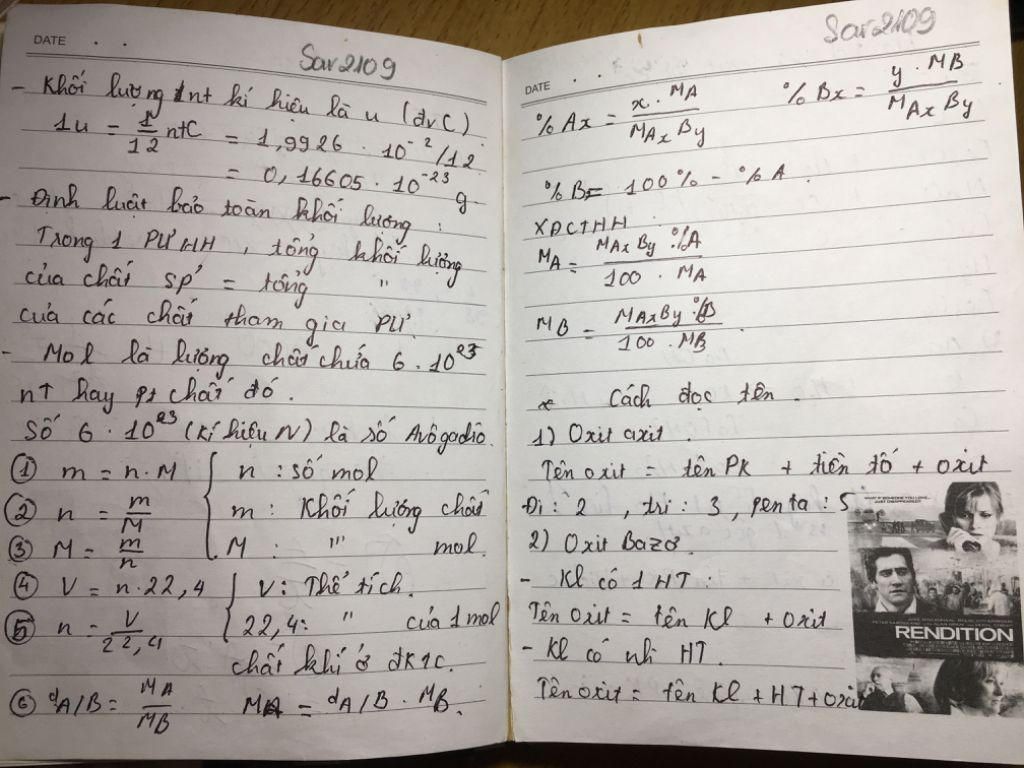 DATE
Sar2109
- Khối lượng 1nt kí hiệu là u (đvC)
1u = 1/12 ntC = 1,9926 . 10⁻²/12
= 0,16605 . 10⁻²³ g
- Định luật bảo toàn khối lượng :
Trong 1 PƯHH, tổng khối lượng
của chất SP' = tổng "
của các chất tham gia PƯ.
- Mol là lượng chất chứa 6 . 10²³
nt hay pt chất đó.
Số 6 . 10²³ (kí hiệu N) là số Avôgađio.
① m = n . M { n : số mol
② n = m/M m : Khối lượng chất
③ M = m/n M : "' mol.
④ V = n . 22,4 { V : Thể tích.
⑤ n = V/22,4 22,4 : " của 1 mol
chất khí ở đktc.
⑥ dA/B = MA/MB MA = dA/B . MB.
Sar2109
DATE
%Ax = x . MA/MAxBy %Bx = y . MB/MAxBy
%B = 100% - %A
XĐCTHH
MA = MAxBy . %A/100 . MA
MB = MAxBy . %B/100 . MB
* Cách đọc tên.
1) Oxit axit.
Tên oxit = tên PK + tiền tố + oxit
Đi : 2, tri : 3, penta : 5
2) Oxit Bazơ.
- Kl có 1 HT :
Tên oxit = tên Kl + oxit
- Kl có nhì HT.
Tên oxit = tên Kl + HT + oxit
WHAT IF SOMEONE YOU LOVE...
JUST DISAPPEARED?
RENDITION